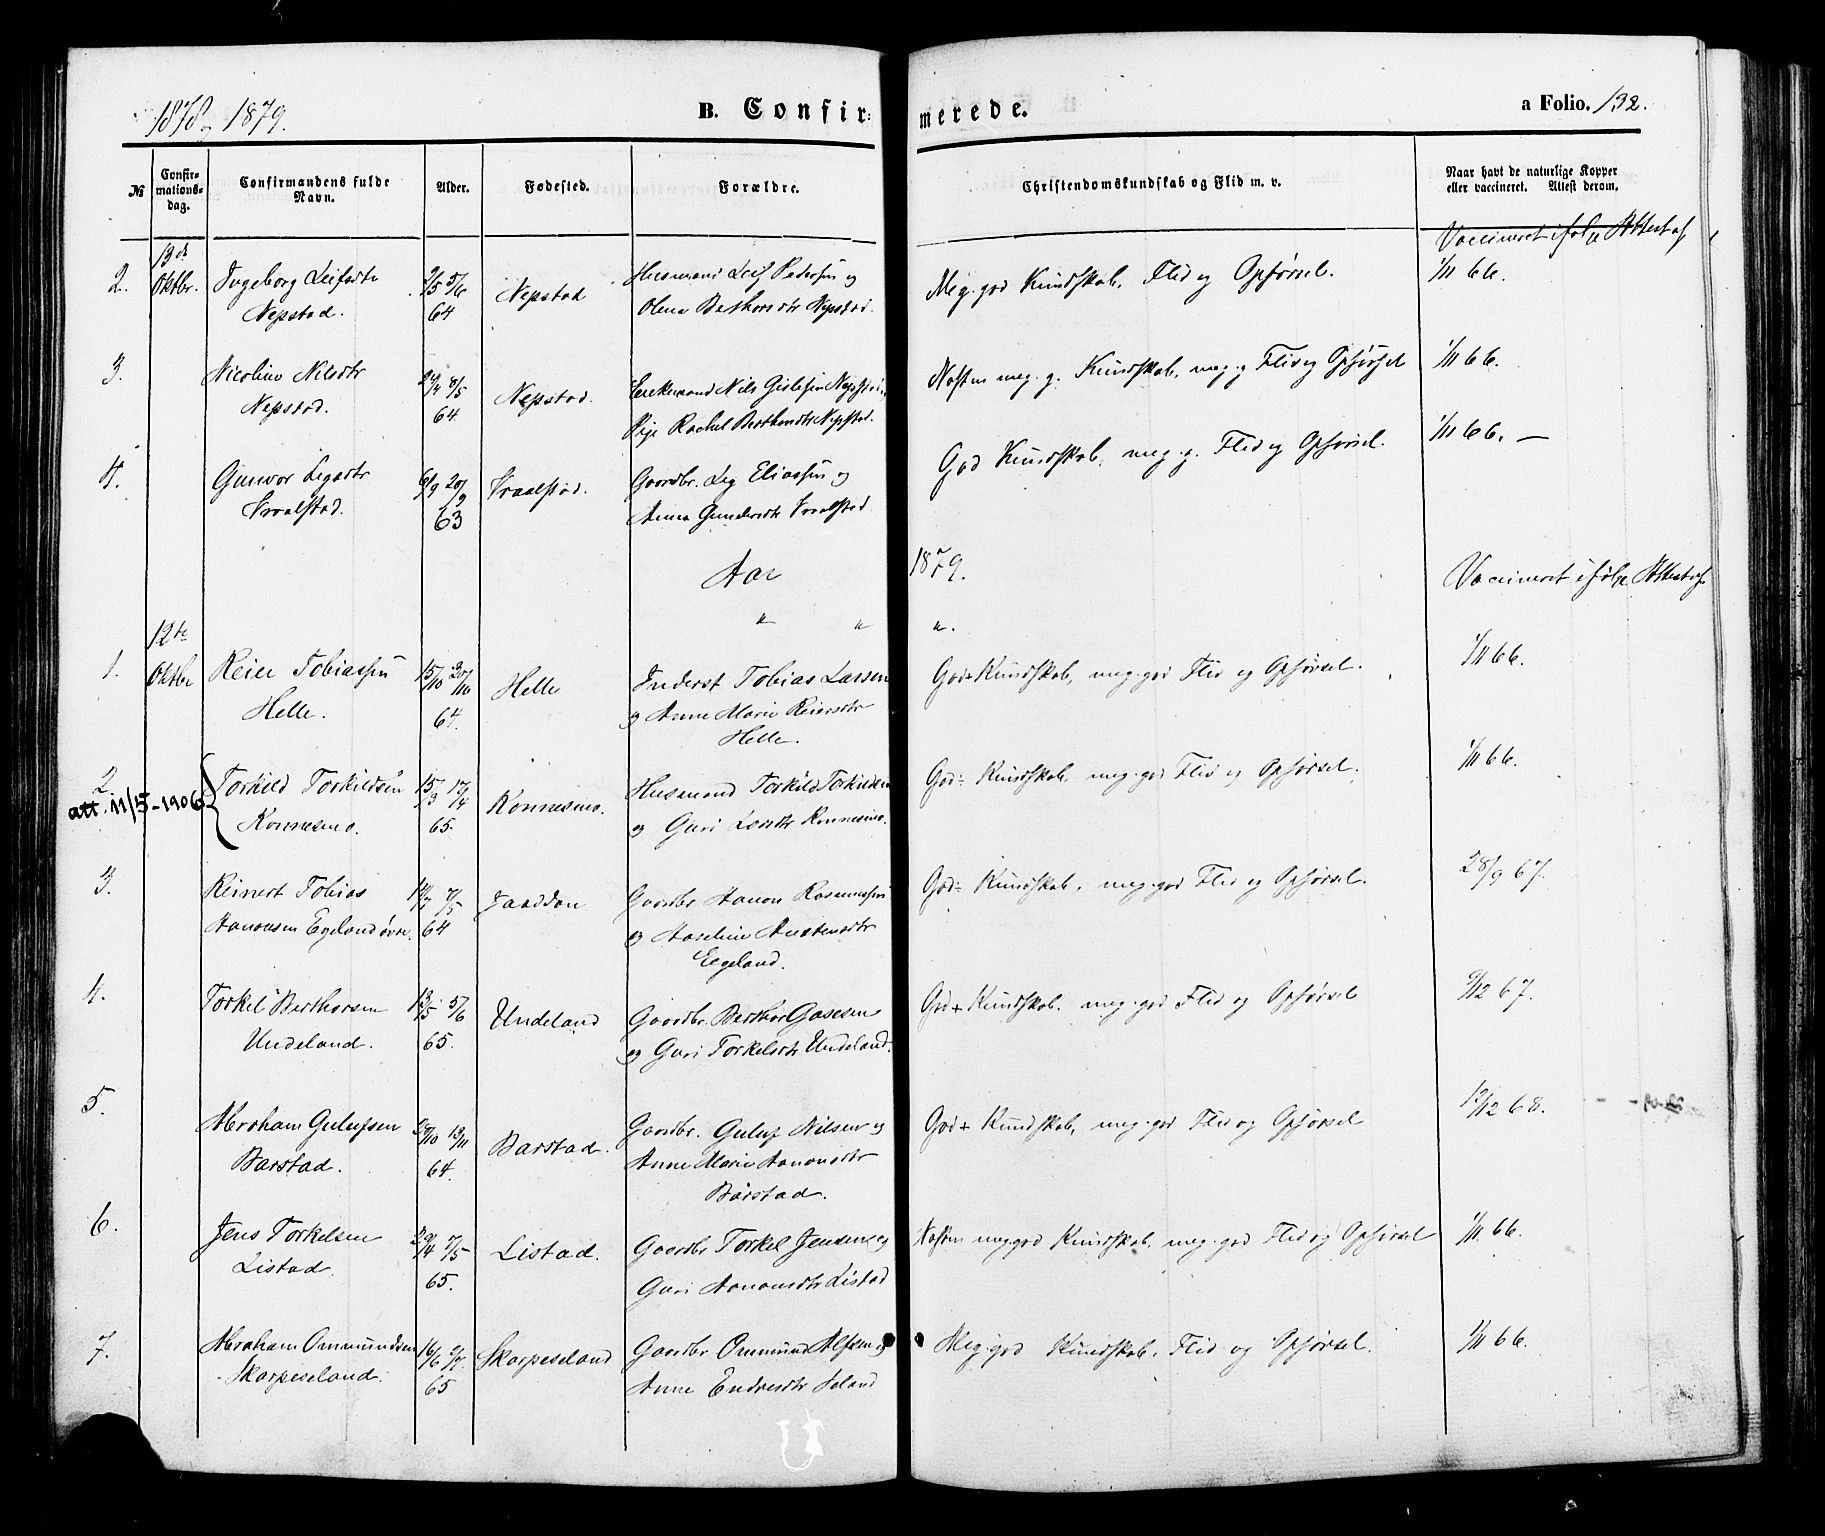 1878-1879.
B. Confirmerede.
a Folio. 132.
№
Confirmationsdag.
Confirmandens fulde Navn.
Alder.
Fødested.
Forældre.
Christendomskundskab og Flid m. v.
Naar havt de naturlige Kopper eller vaccineret. Attest derom.
Vaccineret ifølge Attest af
2. 13de Oktbr. Ingeborg Leifsdtr 2/5 5/6 Nepstad Husmand Leif Pedersen og Meg. god Kundskab, Flid og Opførsel. 1/11 66.
Nepstad. 64 Olena Berthorsdtr Nepstad.
3. Nicoline Nilsdtr 8/5 Nepstad. Enkemand Nils Gislesen Nepstad Næsten meg. g. Kundskab, meg. g Flid og Opførsel 1/11 66.
Nepstad. 64. Pige Rachel Berthorsdtr Nepstad.
4. Gunvor Legsdtr 6/9 20/9 Vraalstad. Gaardbr. Leg Eliassen og God Kundskab, meg. g. Flid og Opførsel. 1/11 66. —
Vraalstad. 63 Anna Gundersdtr Vraalstad.
Aar 1879. Vaccineret ifølge Attest af
" " ".
1. 12te Oktbr Reier Tobiassen 15/10 20/10 Helle Inderst Tobias Lassen God+ Kundskab, meg. god Flid og Opførsel. 1/11 66.
Helle. 64. og Anne Marie Reiersdtr
Helle.
2 Torkild Torkildsen 15/3 17/4 Konnesmo. Husmand Torkild Torkildsen God÷ Kundskab, meg. god Flid og Opførsel. 1/11 66.
att. 11/5-1906 Konnesmo. 65. og Guri Larsdtr Konnesmo.
3. Reinert Tobias 7/5 Gaardbr Aanon Rasmussen God÷ Kundskab, meg. god Flid og Opførsel. 28/9 67.
Aanonsen Egeland øvre. 64 og Aaseline Anstensdtr
Egeland.
4. Torkel Berthorsen 13/5 5/6 Undeland Gaardbr. Berthor Gasesen God+ Kundskab. meg. god Flid og Opførsel 9/12 67.
Undeland. 65. og Guri Torkelsdtr Undeland.
5. Abraham Gulufsen 29/10 13/11 Barstad. Gaardbr. Guluf Nilsen og God+ Kundskab, meg. god Flid og Opførsel 12/12 68.
Barstad. 64. Anne Marie Aanonsdtr
Barstad.
6. Jens Torkelsen 20/4 7/5 Listad. Gaardbr Torkel Jensen og Næsten meg god Kundskab, meg. god Flid og Opførsel 1/11 66.
Listad. 65. Guri Aanonsdtr Listad
7. Abraham Ommundsen 16/6 9/7. Skarpeseland Gaardbr Ommund Alfsen og Meg. god Kundskab, Flid og Opførsel. 1/11 66.
Skarpeseland. 65 Anne Endresdtr